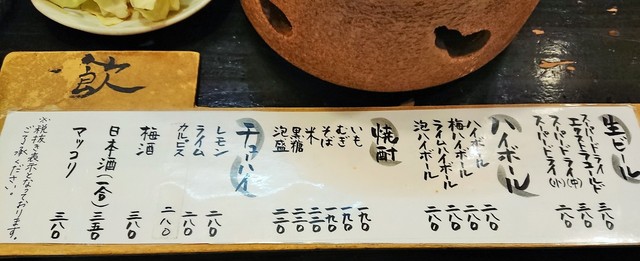 飲
生ビール
スーパードライ
エクストラコールド 三八〇
スーパードライ(中) 三八〇
スーパードライ(小) 二八〇
ハイボール
ハイボール 二八〇
梅ハイボール 二八〇
ライムハイボール 二八〇
泡ハイボール 二八〇
焼酎
いも 一九〇
むぎ 一九〇
そば 一九〇
米 二二〇
黒糖 二二〇
泡盛 二二〇
チューハイ
レモン 二八〇
ライム 二八〇
カルピス 二八〇
梅酒 三八〇
日本酒(一合) 三五〇
マッコリ 三八〇
※税抜き表示となっております。
ご了承ください。